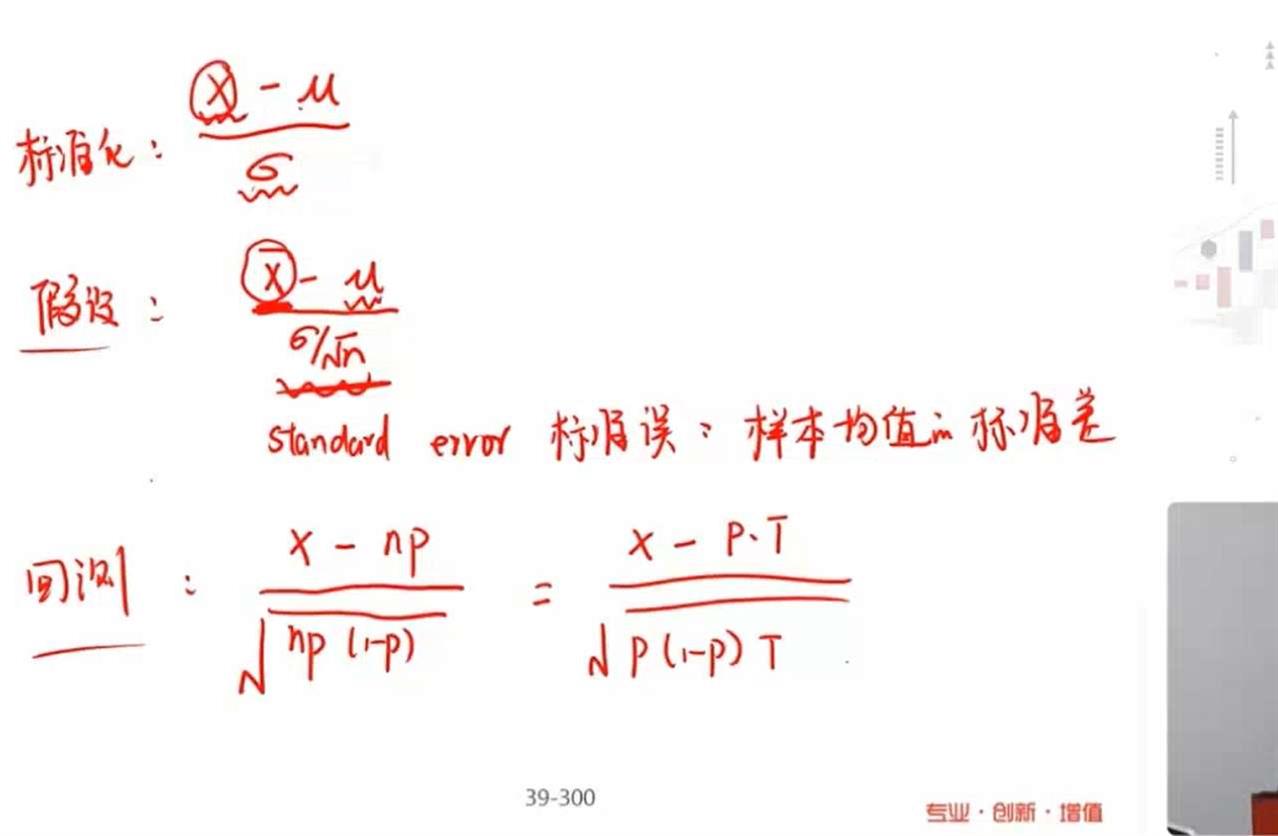 标准化: (X - μ) / σ
假设: (X̄ - μ) / (σ/√n)
standard error 标准误: 样本均值的标准差
回测: (x - np) / √(np(1-p)) = (x - p·T) / √(p(1-p)T)
39-300
专业·创新·增值